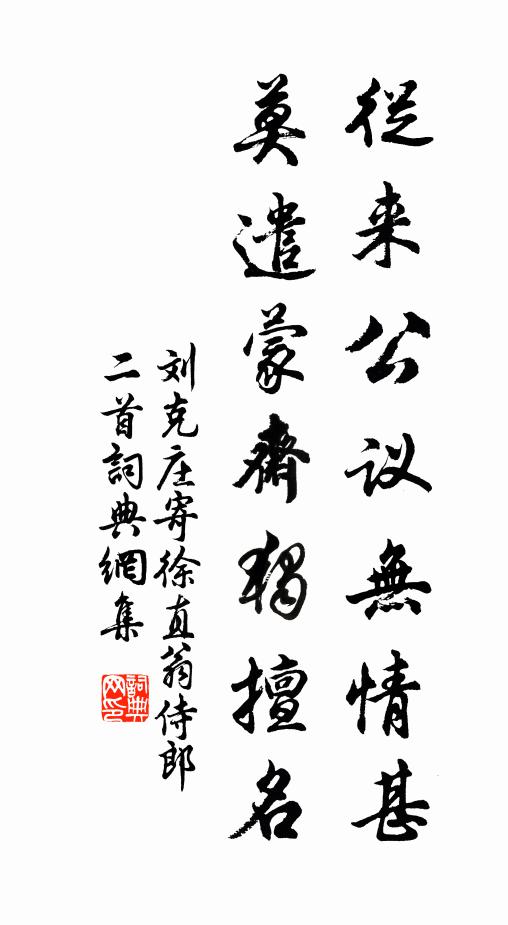 從来公议無情甚
莫遣蒙齋獨擅名
刘克庄寄徐直翁侍郎
二首詞典網集
詞典
网印